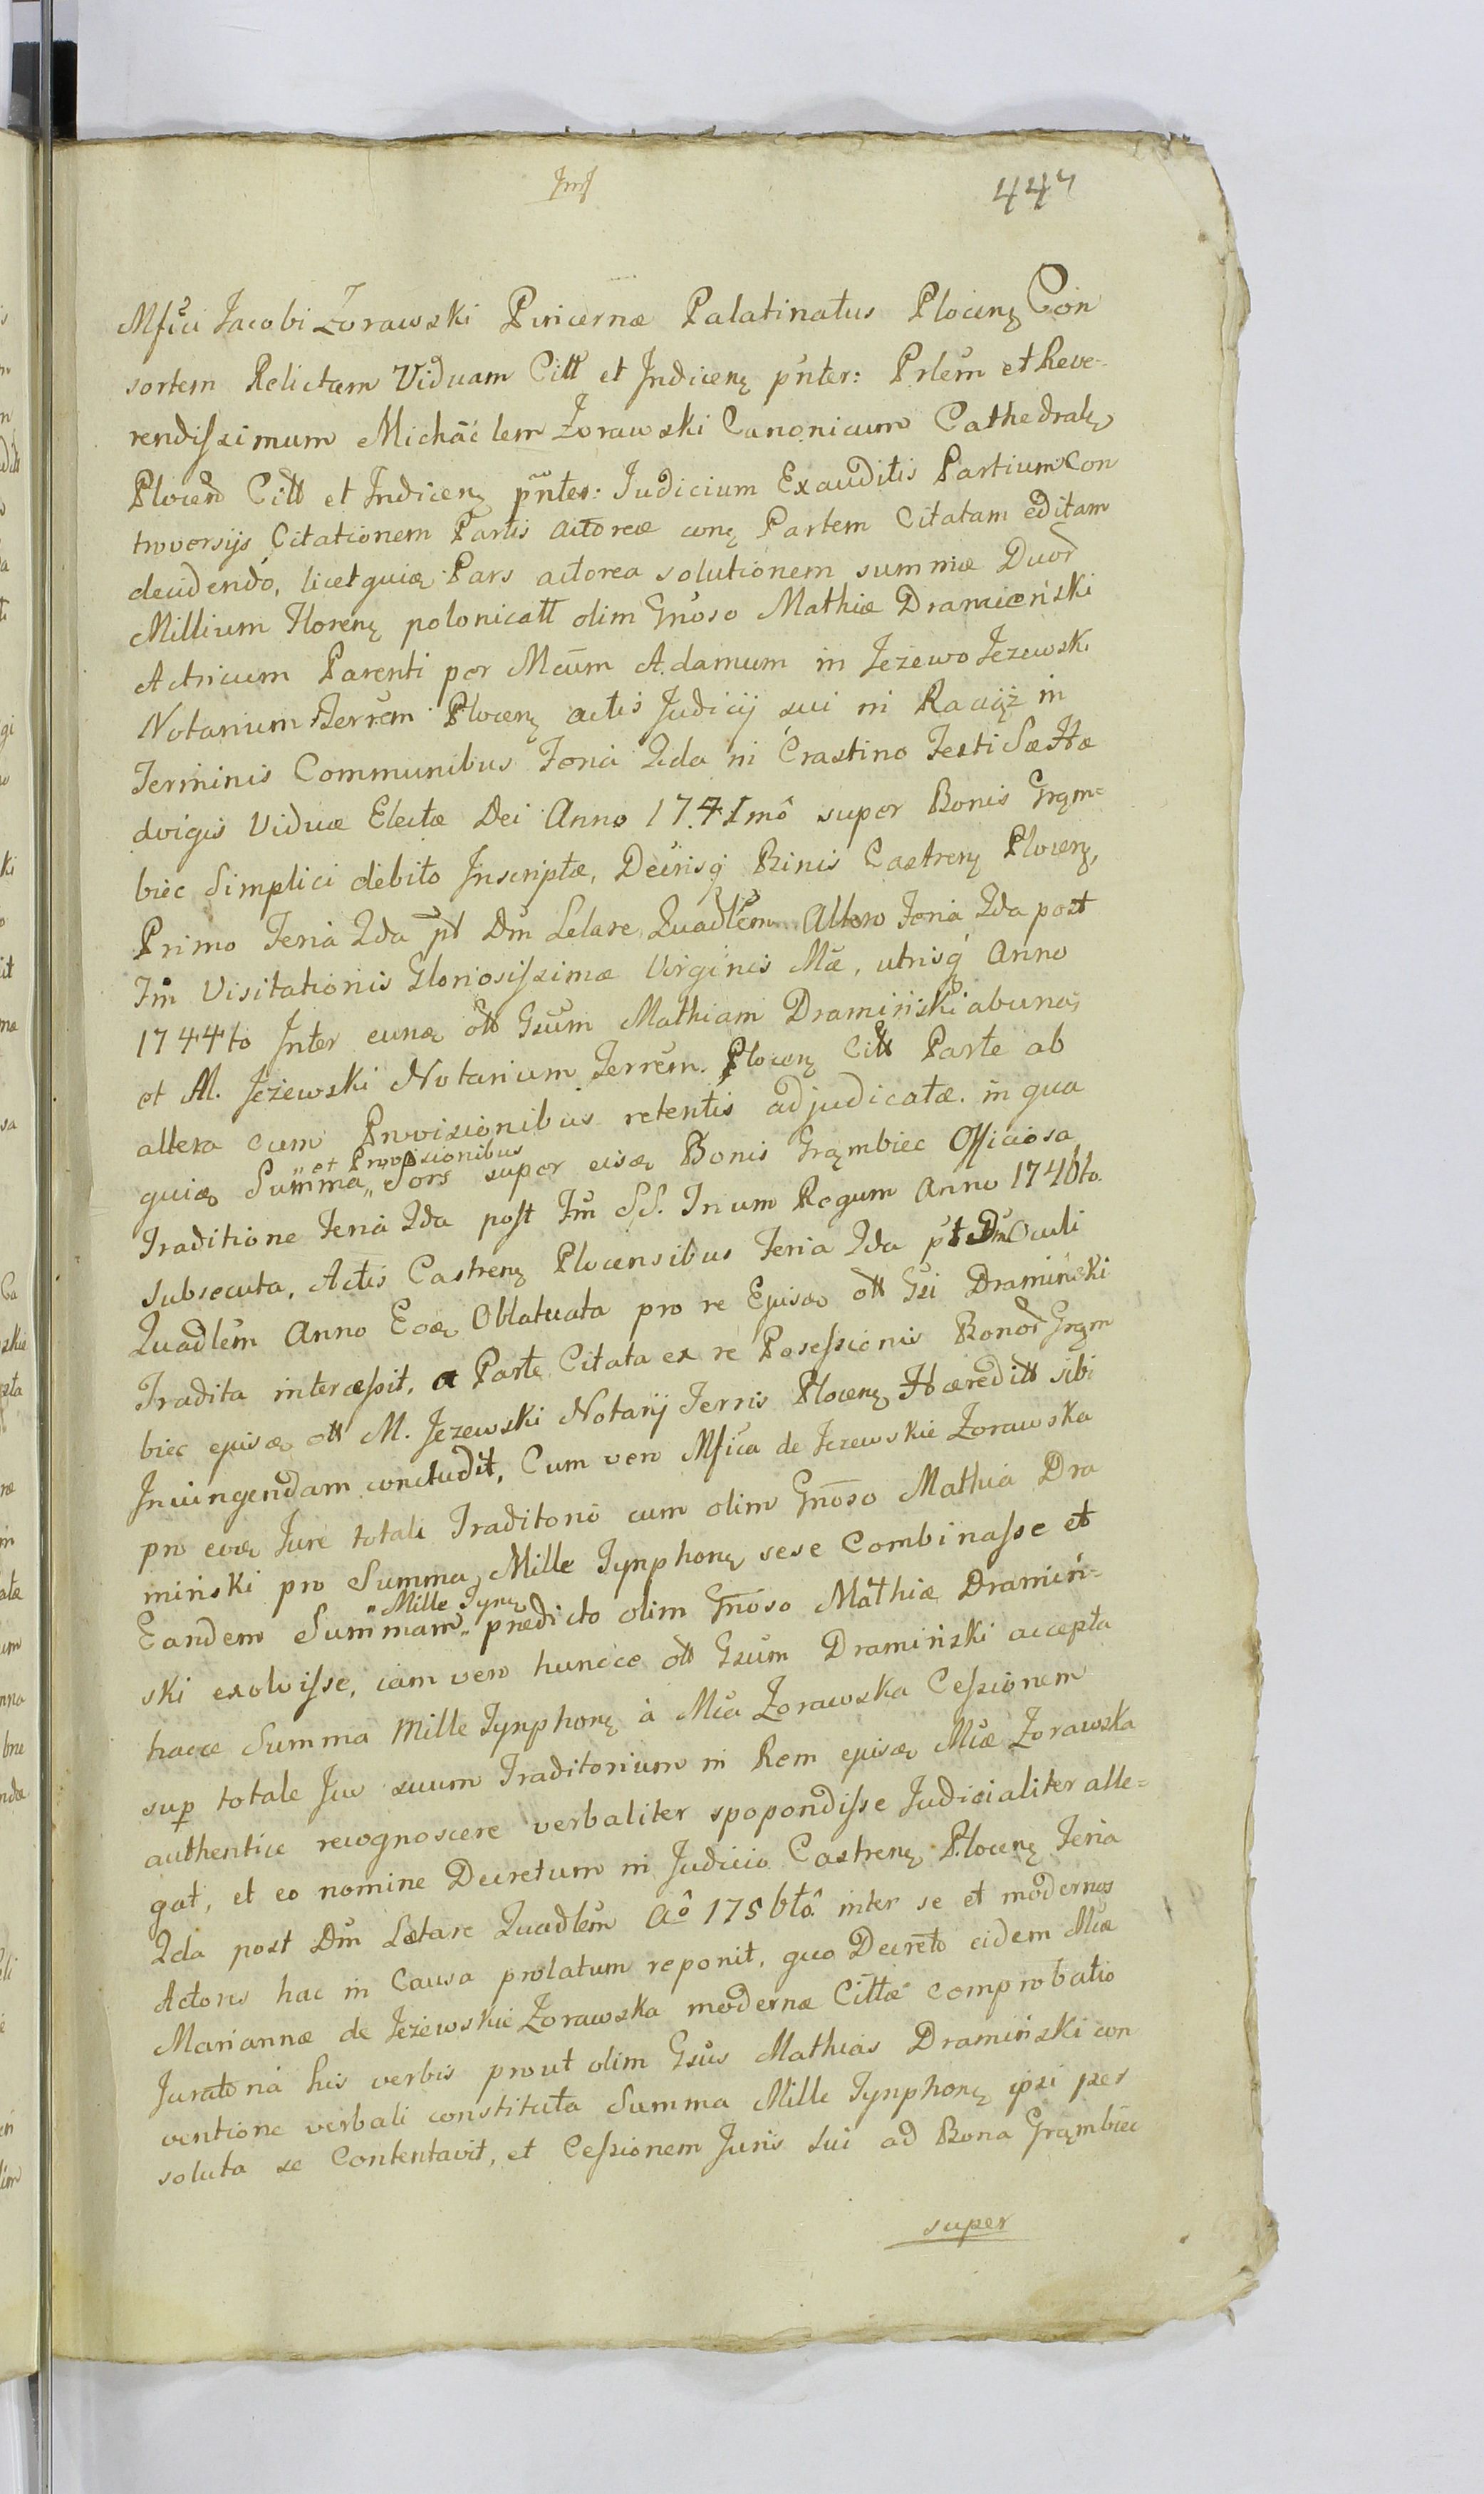 447
Mfici Jacobi Zorawski Pincernæ Palatinatus Plocenę Con
sortem Relictam Viduam Citt et Indicenę pnter: Prlem et Reve-
rendissimum Michaelem Zorawski Canonicum Cathedralę
Plocen Citt et Indicenę pnter: Judicium Exauditis Partium Con
troversijs Citationem Partis actoreæ conę Partem Citatam editam
decidendo, licet quią Pars actorea solutionem summæ Duor
Millium Florenę polonicatt olim Gnoso Mathiæ Dramieński
Actricum Parenti per Mcum Adamum in Jezewo Jezewski
Notarium Terrem Plocenę actis Judicij sui in Raciąż in
Terminis Communibus Feria 2da in Crastino Festi Sæ Hæ
dvigis Viduæ Electæ Dei Anno 1741mo super Bonis Grąm-
biec Simplici debito Inscriptæ, Decrisq Binis Castrenę Plocenę,
Primo Feria 2da pt Dm Letare Quadlem Altero Feria 2da post
Fm Visitationis Gloriosissimæ Virginis Mæ, utrisq Anno
1744to Inter eunę ott Gsum Mathiam Dramiński ab una,
et M. Jeżewski Notarium Terrem. Plocenę Citt Parte ab
altera cum Provisionibus retentis adjudicatæ. in qua
" et Provisionibus
quią Summa " Sors super eisą Bonis Grąmbiec Officiosa
Traditione Feria 2da post Fm SS. Trium Regum Anno 1746to.
subsecuta, Actis Castrenę Plocensibus Feria 2da pt Dm Oculi
Quadlem Anno Eoę Oblatuata pro re Ejusą ott Gsi Dramiński
Tradita intercessit, a Parte Citata ex re Possessionis Bonor Grąm
biec ejusą ott M. Jezewski Notarij Terris Plocenę Hæreditt sibi
Injungendam concludit, Cum vero Mfica de Jezewskie Zorawska
pro eoą Jure totali Traditorio cum olim Gnoso Mathia Dra
miński pro Summa Mille Tynphonę sese Combinasse et
" Mille Tynę
Eandem Summam " prædicto olim Gnoso Mathiæ Dramiń-
ski exolvisse, iam vero huncce ott Gsum Dramiński accepta
hacce Summa Mille Tynphonę à Mca Zorawska Cessionem
sup totale Jus suum Traditorium in Rem ejusą Mcæ Zorawska
authentice recognoscere verbaliter spopondisse Judicialiter alle-
gat, et eo nomine Decretum in Judicio Castrenę Plocenę Feria
2da post Dm Lætare Quadlem Ao 1756to inter se et modernos
Actores hac in Causa prolatum reponit, quo Decreto eidem Mcæ
Mariannæ de Jeżewskie Zorawska modernæ Cittæ comprobatio
Juratoria his verbis prout olim Gsus Mathias Dramiński con
ventione verbali constituta Summa Mille Tynphonę ipsi per
soluta se Contentavit, et Cessionem Juris sui ad Bona Grąmbiec
super